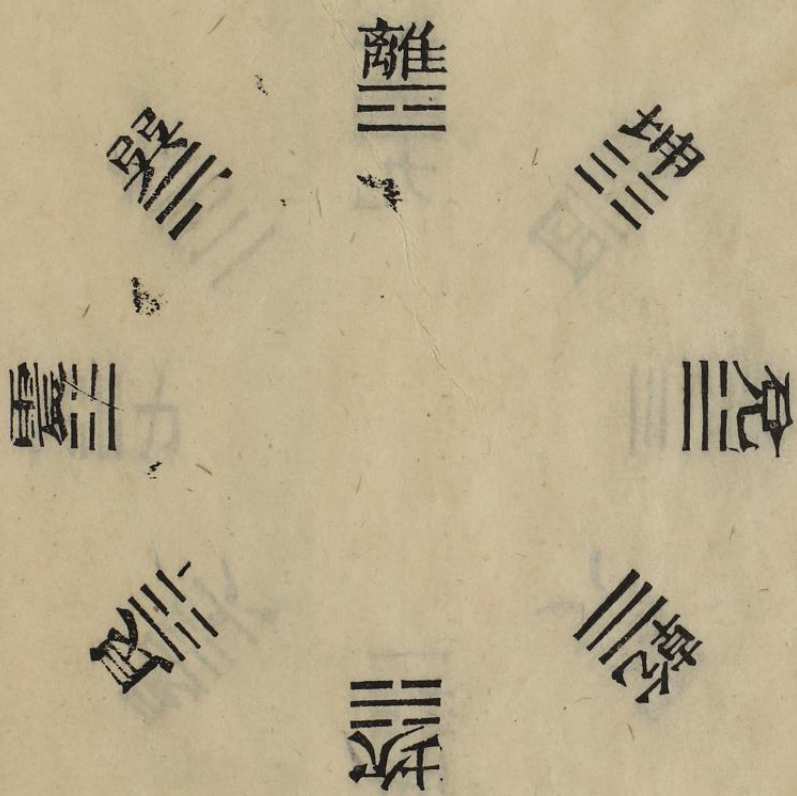 離
坤
兌
乾
坎
艮
震
巽